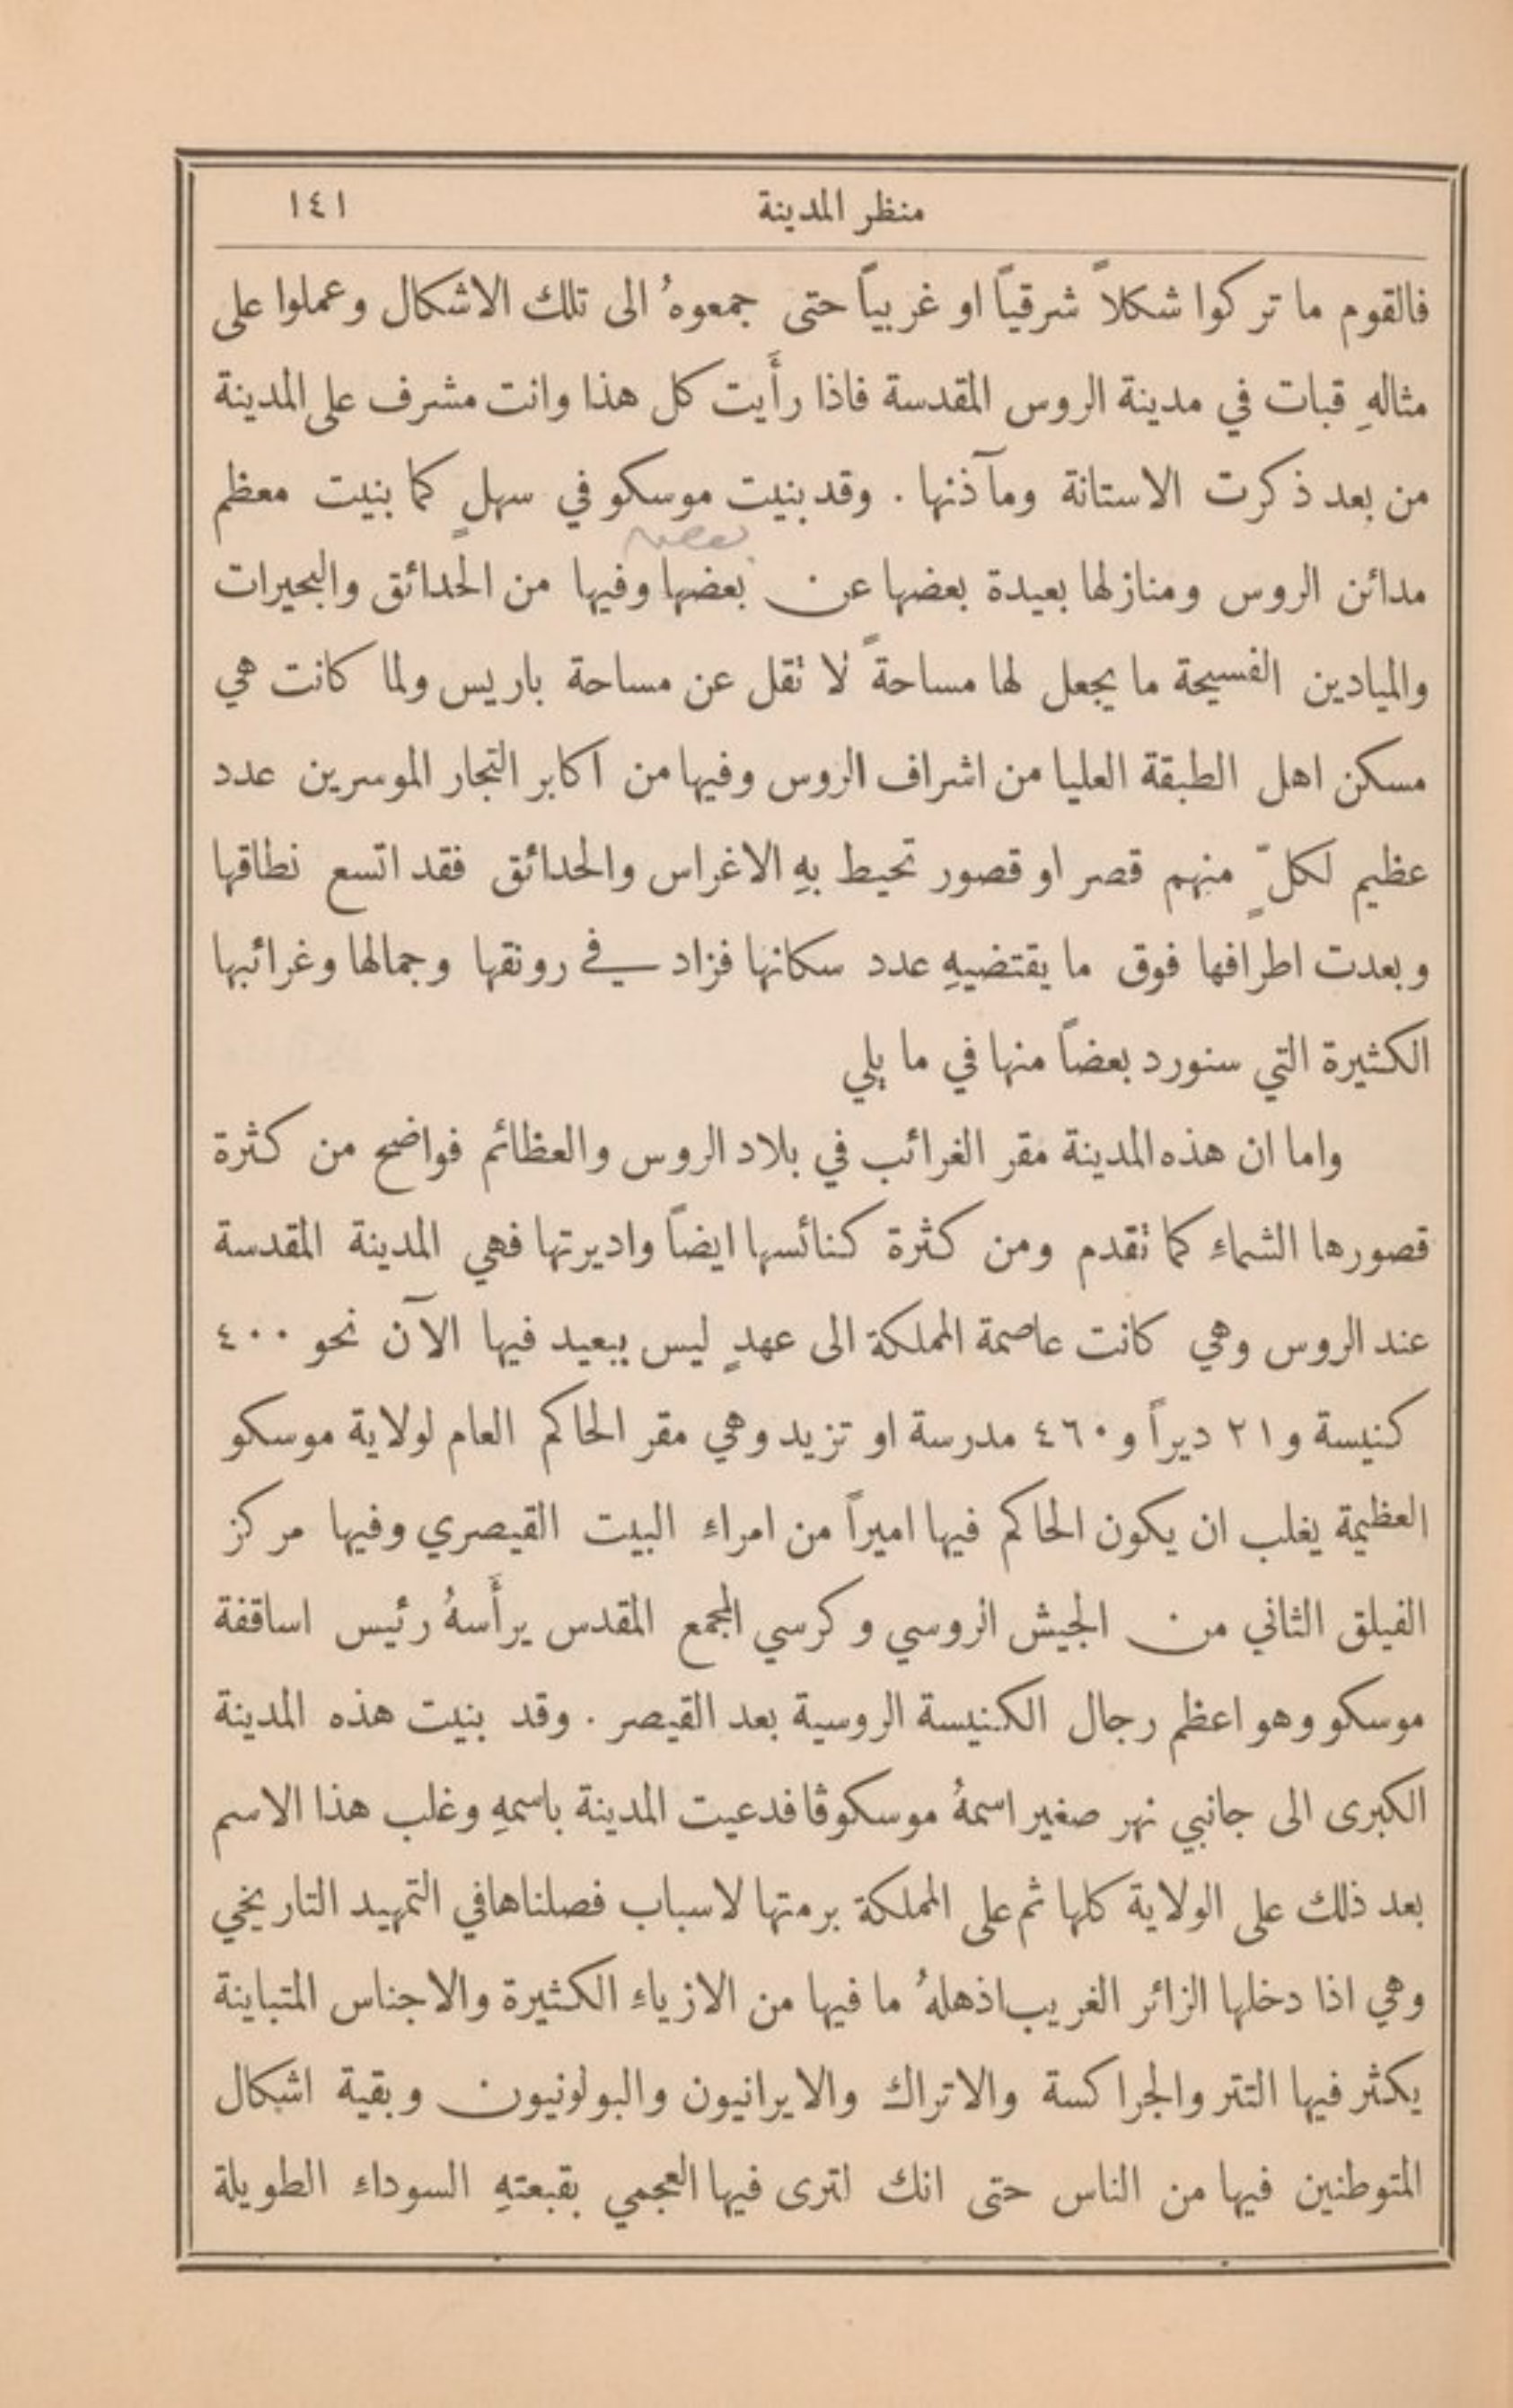 منظر المدينة ١٤١
فالقوم ما تركوا شكلاً شرقياً او غربياً حتى جمعوهُ الى تلك الاشكال وعملوا على
مثالهِ قبات في مدينة الروس المقدسة فاذا رأَيت كل هذا وانت مشرف على المدينة
من بعد ذكرت الاستانة ومآذنها . وقد بنيت موسكو في سهلٍ كما بنيت معظم
مدائن الروس ومنازلها بعيدة بعضها عن بعضها وفيها من الحدائق والبحيرات
والميادين الفسيحة ما يجعل لها مساحةً لا تقل عن مساحة باريس ولما كانت هي
مسكن اهل الطبقة العليا من اشراف الروس وفيها من اكابر التجار الموسرين عدد
عظيم لكلٍّ منهم قصر او قصور تحيط بهِ الاغراس والحدائق فقد اتسع نطاقها
وبعدت اطرافها فوق ما يقتضيهِ عدد سكانها فزاد في رونقها وجمالها وغرائبها
الكثيرة التي سنورد بعضاً منها في ما يلي
واما ان هذه المدينة مقر الغرائب في بلاد الروس والعظائم فواضح من كثرة
قصورها الشماء كما تقدم ومن كثرة كنائسها ايضاً واديرتها فهي المدينة المقدسة
عند الروس وهي كانت عاصمة المملكة الى عهدٍ ليس ببعيد فيها الآن نحو ٤٠٠
كنيسة و٢١ ديراً و٤٦٠ مدرسة او تزيد وهي مقر الحاكم العام لولاية موسكو
العظيمة يغلب ان يكون الحاكم فيها اميراً من امراء البيت القيصري وفيها مركز
الفيلق الثاني من الجيش الروسي وكرسي المجمع المقدس يرأَسهُ رئيس اساقفة
موسكو وهو اعظم رجال الكنيسة الروسية بعد القيصر . وقد بنيت هذه المدينة
الكبرى الى جانبي نهر صغير اسمهُ موسكوڤا فدعيت المدينة باسمهِ وغلب هذا الاسم
بعد ذلك على الولاية كلها ثم على المملكة برمتها لاسباب فصلناها في التمهيد التاريخي
وهي اذا دخلها الزائر الغريب اذهلهُ ما فيها من الازياء الكثيرة والاجناس المتباينة
يكثر فيها التتر والجراكسة والاتراك والايرانيون والبولونيون وبقية اشكال
المتوطنين فيها من الناس حتى انك لترى فيها العجمي بقبعتهِ السوداء الطويلة